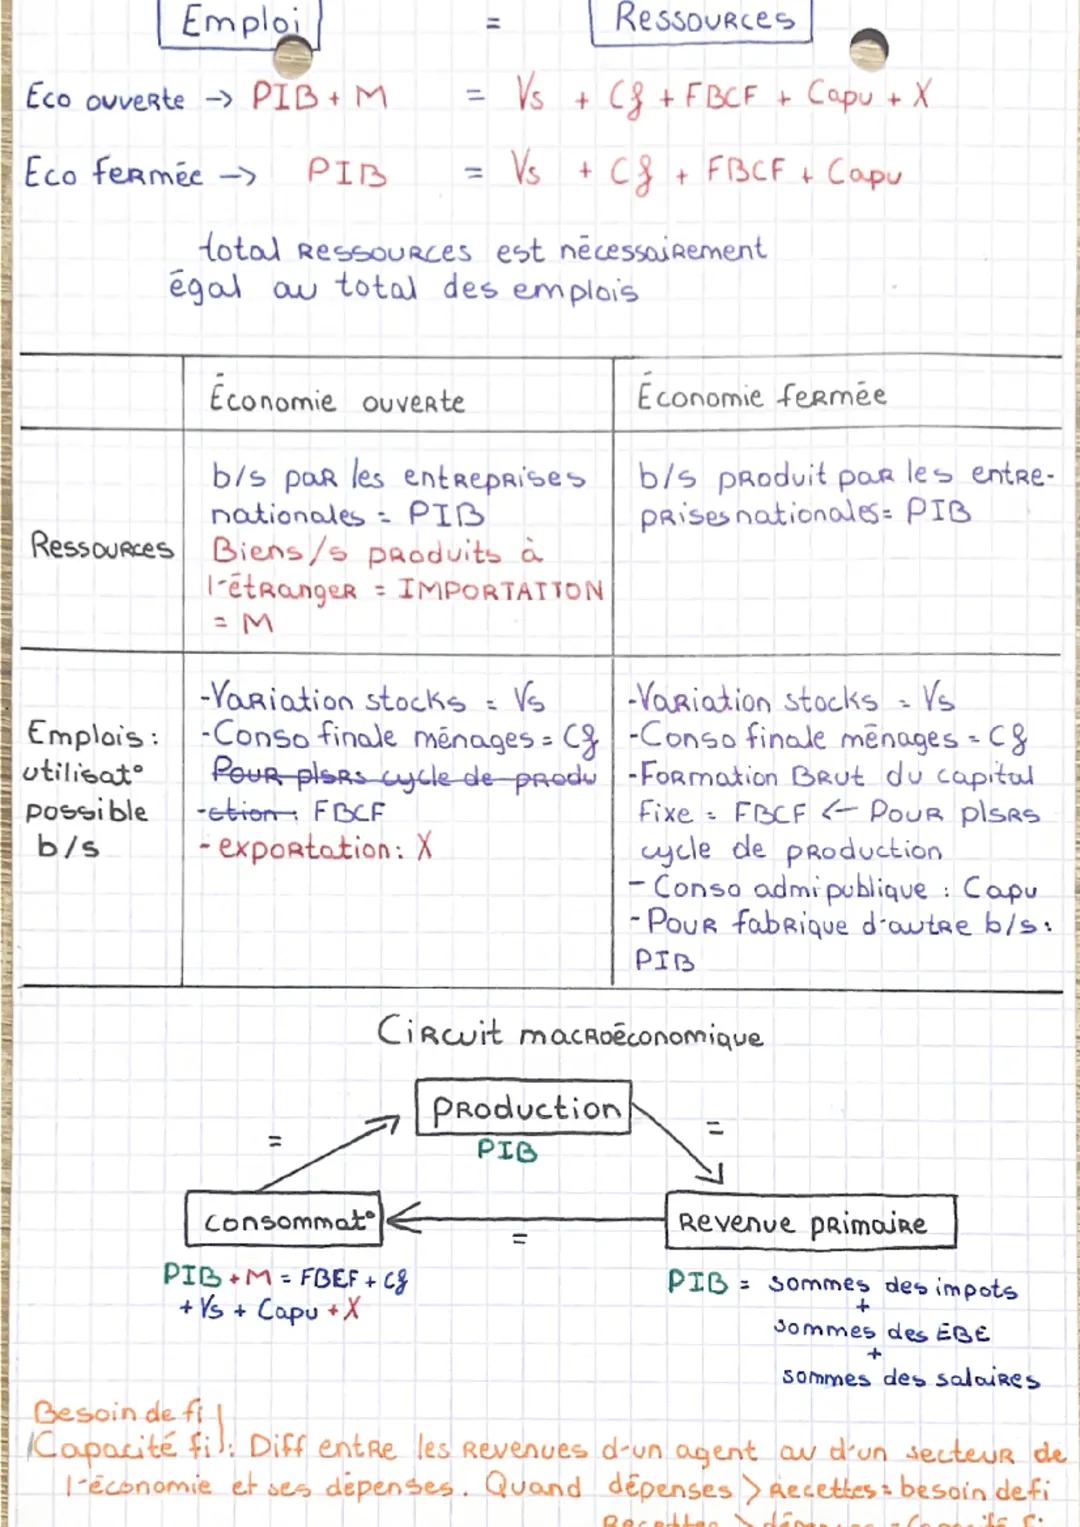 Emploi = Ressources
Eco ouverte -> PIB + M = Vs + Cf + FBCF + Capu + X
Eco fermée -> PIB = Vs + Cf + FBCF + Capu
total ressources est nécessairement
égal au total des emplois
Économie ouverte
Économie fermée
Ressources
b/s par les entreprises
nationales = PIB
Biens/s produits à
l'étranger = IMPORTATION
= M
b/s produit par les entre-
prises nationales = PIB
Emplois :
utilisat°
possible
b/s
-Variation stocks = Vs
-Conso finale ménages = Cf
Pour plsrs cycle de produ
-ction : FBCF
- exportation : X
-Variation stocks = Vs
-Conso finale ménages = Cf
-Formation Brut du capital
fixe = FBCF <- Pour plsrs
cycle de production
- Conso admi publique : Capu
-Pour fabrique d'autre b/s :
PIB
Circuit macroéconomique
Production
PIB
=
=
consommat°
Revenue primaire
=
PIB + M = FBEF + Cf
+ Vs + Capu + X
PIB = sommes des impots
+
sommes des EBE
+
sommes des salaires
Besoin de fi
/Capacité fi : Diff entre les revenues d'un agent au d'un secteur de
l'économie et ses dépenses. Quand dépenses > recettes = besoin de fi
Recettes > dépenses = Capacité fi